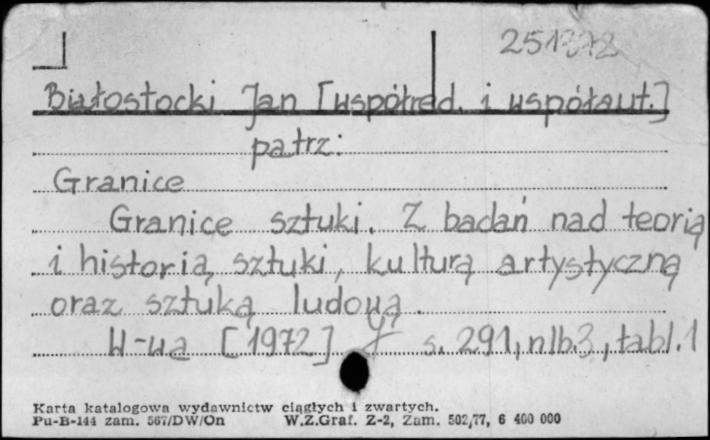 251378
Białostocki Jan [współred. i współaut.]
patrz:
Granice
Granice sztuki. Z badań nad teorią
i historią sztuki, kulturą artystyczną
oraz sztuką ludową.
W-wa [1972] s. 291, nlb.3, tabl.1
Karta katalogowa wydawnictw ciągłych i zwartych.
Pu-B-144 zam. 567/DW/On W.Z.Graf. Z-2, Zam. 502/77, 6 400 000